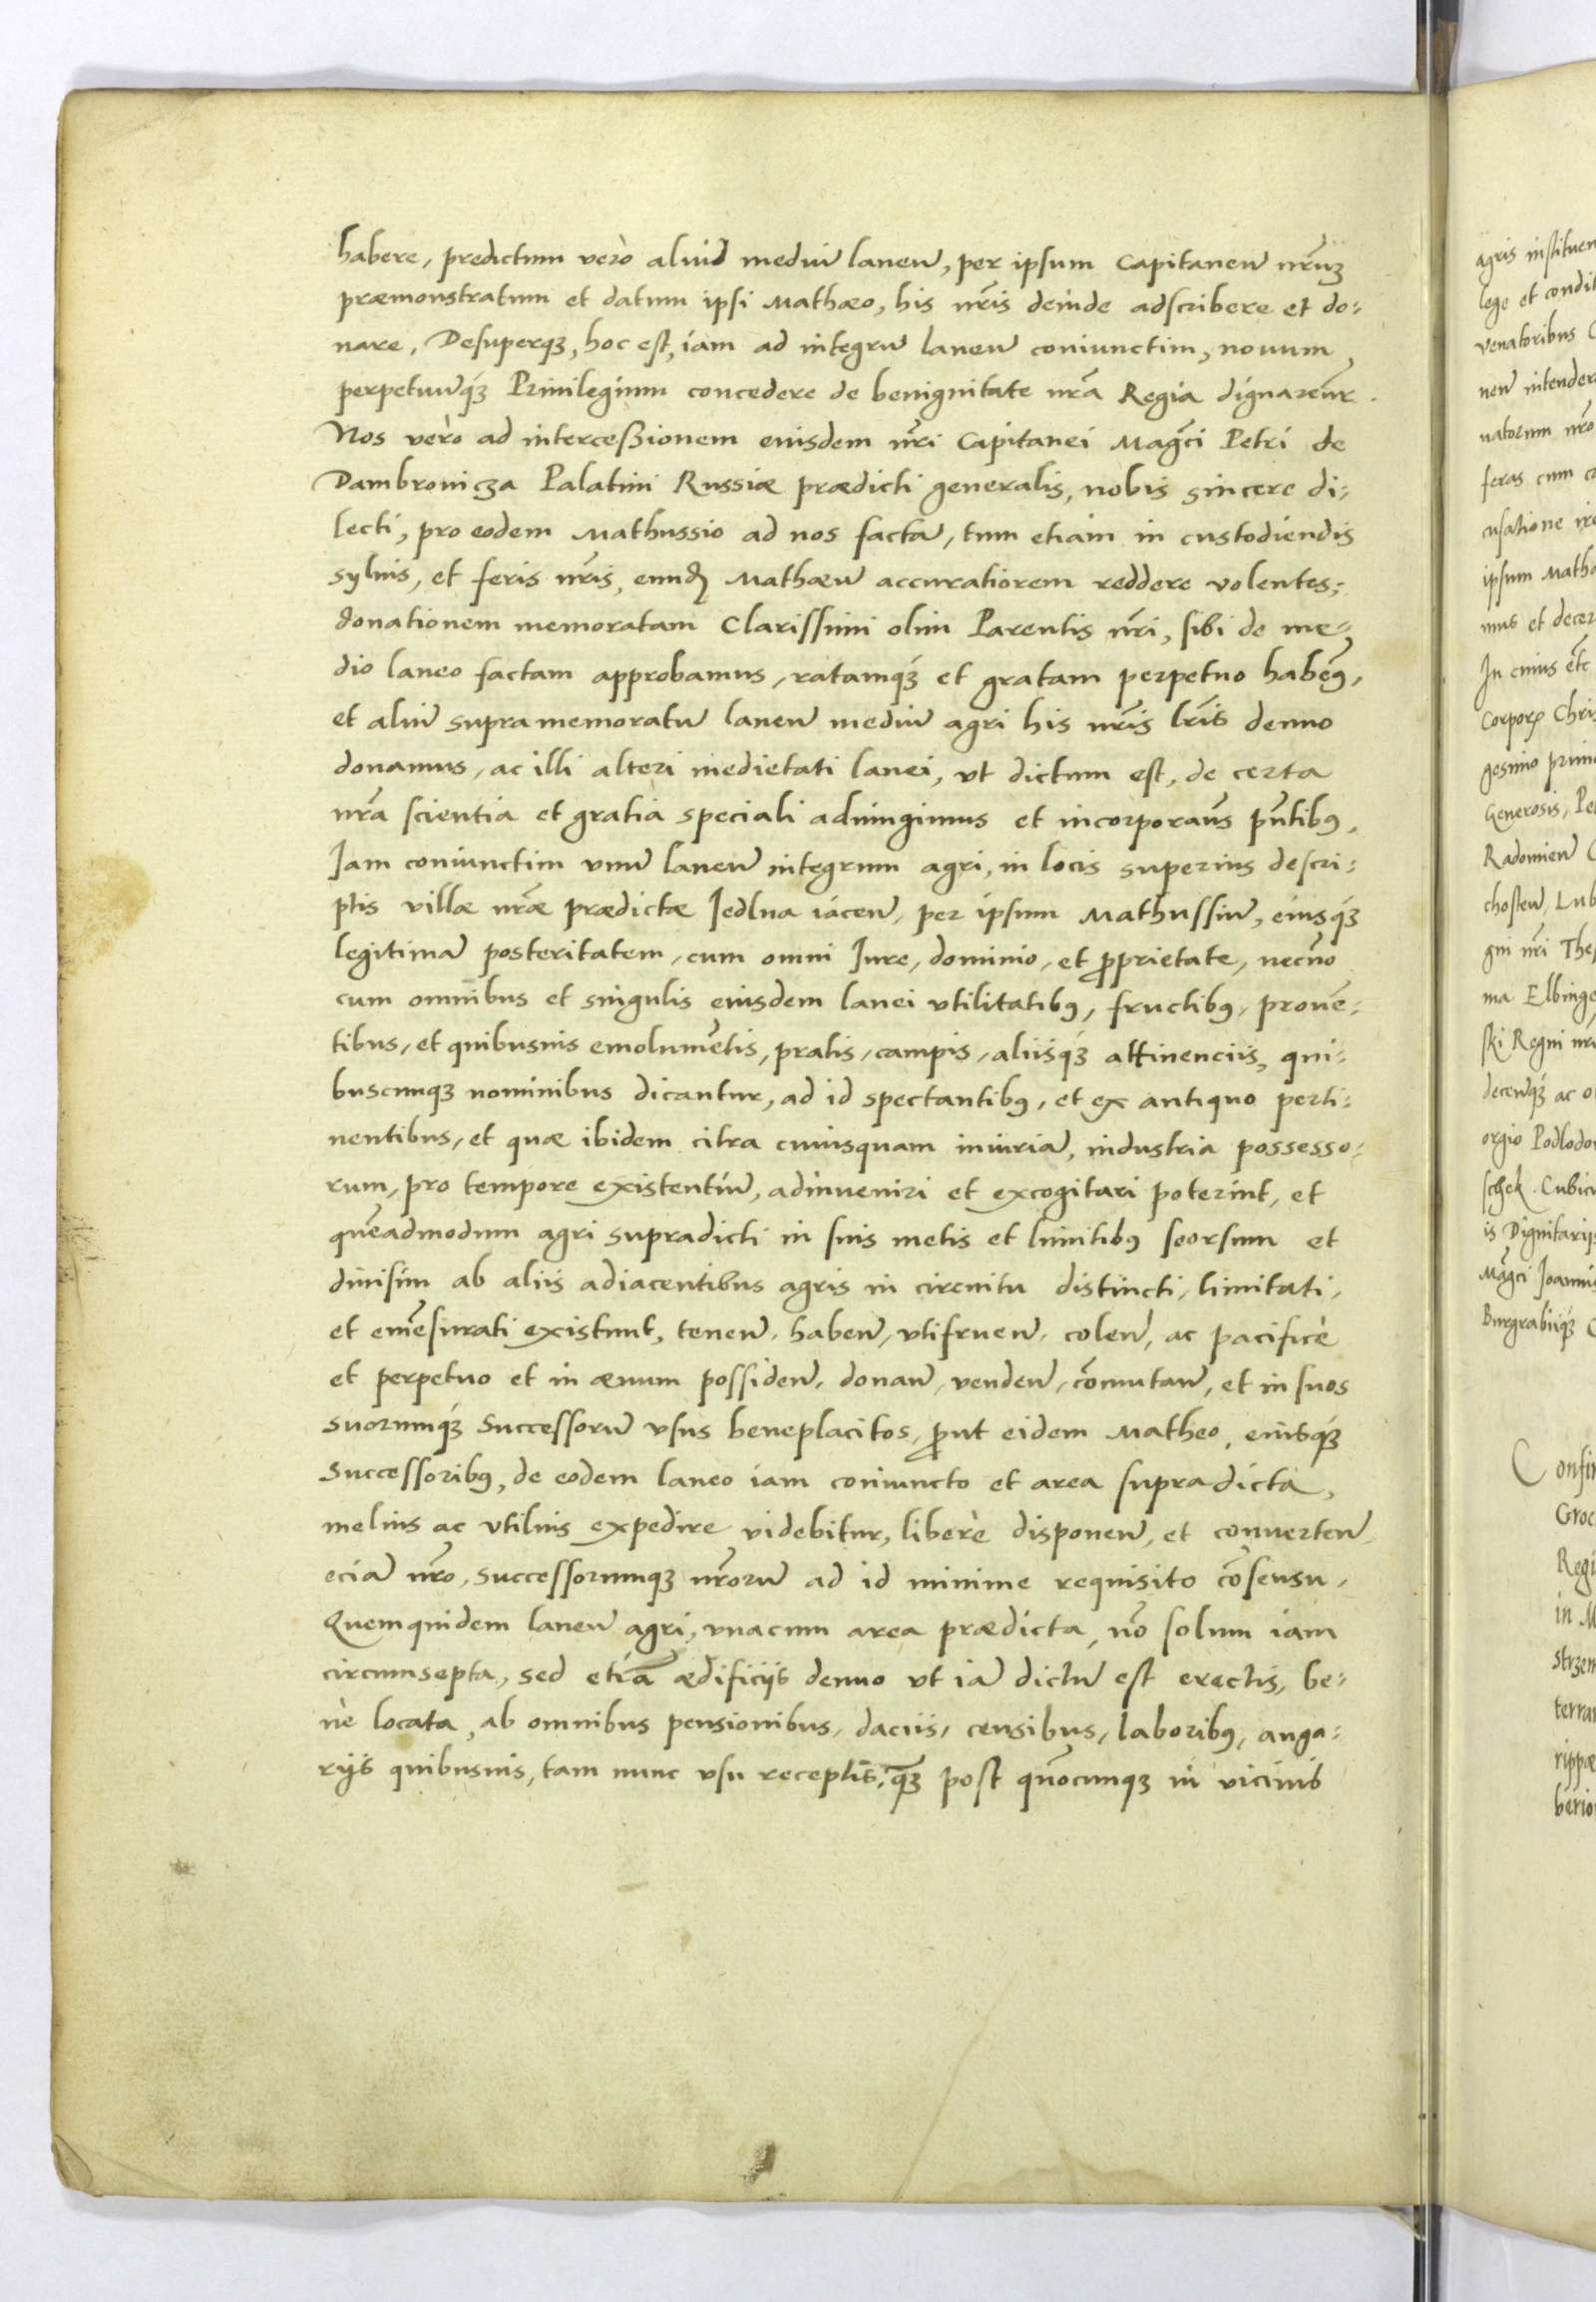 habere, predictum verò aliud mediū laneū, per ipsum Capitaneū nrūꝫ
præmonstratum et datum ipsi Mathæo, his nr̃is deinde adscribere et do:
nare, Desuperqꝫ, hoc est, iam ad integrū laneū coniunctim, nouum,
perpetuūqꝫ Priuilegium concedere de benignitate nr̃a Regia dignarem̃r.
Nos verò ad intercessionem eiusdem nr̃i Capitanei Mag̃ci Petri de
Dambrouicza Palatini Russiæ prædicti generalis, nobis sincere di:
lecti, pro eodem Mathussio ad nos factã, tum etiam in custodiendis
syluis, et feris nr̃is, eundꝫ Mathæū accuratiorem reddere volentes;
donationem memoratam Clarissimi olim Parentis nr̃i, sibi de me:
dio laneo factam approbamus, ratamqꝫ et gratam perpetuo habem9,
et aliū supramemoratū laneū mediū agri his nr̃is lr̃is denuo
donamus, ac illi alteri medietati lanei, vt dictum est, de certa
nr̃a scientia et gratia speciali adiungimus et incorporam̃s pñtib9,
Iam coniunctim vnū laneū integrum agri, in locis superius descri:
ptis villæ nr̃æ prædictæ Iedlna iaceñ, per ipsum Mathussiū, eiusqꝫ
legitimã posteritatem, cum omni Iure, dominio, et p̃prietate, necño
cum omnibus et singulis eiusdem lanei vtilitatib9, fructib9, prouẽ:
tibus, et quibusuis emolumẽtis, pratis, campis, aliisqꝫ attinenciis, qui:
buscunqꝫ nominibus dicantur, ad id spectantib9, et ex antiquo perti:
nentibus, et quæ ibidem citra cuiusquam iniuriã, industria possesso:
rum, pro tempore existentiū, adinueniri et excogitari poterint, et
quẽadmodum agri supradicti in suis metis et limitib9 seorsum et
diuisim ab aliis adiacentibus agris in circuitu distincti, limitati,
et emẽsurati existunt, teneñ, habeñ, vtifrueñ, coleñ, ac pacificè
et perpetuo et in æuum possideñ, donañ, vendeñ, cõmutañ, et in suos
suorumqꝫ Successorū vsus beneplacitos, p̃ut eidem Matheo, eiusqꝫ
Successorib9, de eodem laneo iam coniuncto et area supradicta,
melius ac vtilius expedire videbitur, liberè disponeñ, et conuerteñ
eciã nr̃o, successorumqꝫ nr̃orū ad id minime requisito cõsensu,
Quemquidem laneū agri, vnacum area prædicta, nõ solum iam
circumsepta, sed etiã ædificijs denuo vt iã dictū est erectis, be:
nè locata, ab omnibus pensionibus, daciis, censibus, laborib9, anga:
rijs quibusuis, tam nunc vsu receptis, qꝫ̃ post quõcunqꝫ in vicinis
agris instituen
lege et condit
venatoribus
neū intender
uatorum nr̃o
feras cum
cusatione
ipsum Matha
mus et decer
In cuius etc̃
Corporꝫ Chris
gesimo prim
Generosis, Pe
Radomieñ
chosteñ, Lub
gni nr̃i The
ma Elbinge
ski Regni nr̃
decemqꝫ ac
orgio Podlodo
schek. Cubicu
is Dignitarijs
Mag̃ci Joannis
Burgrabiiqꝫ
Confir
Groc
Regi
in M
strzem
terrar
rippæ
berio